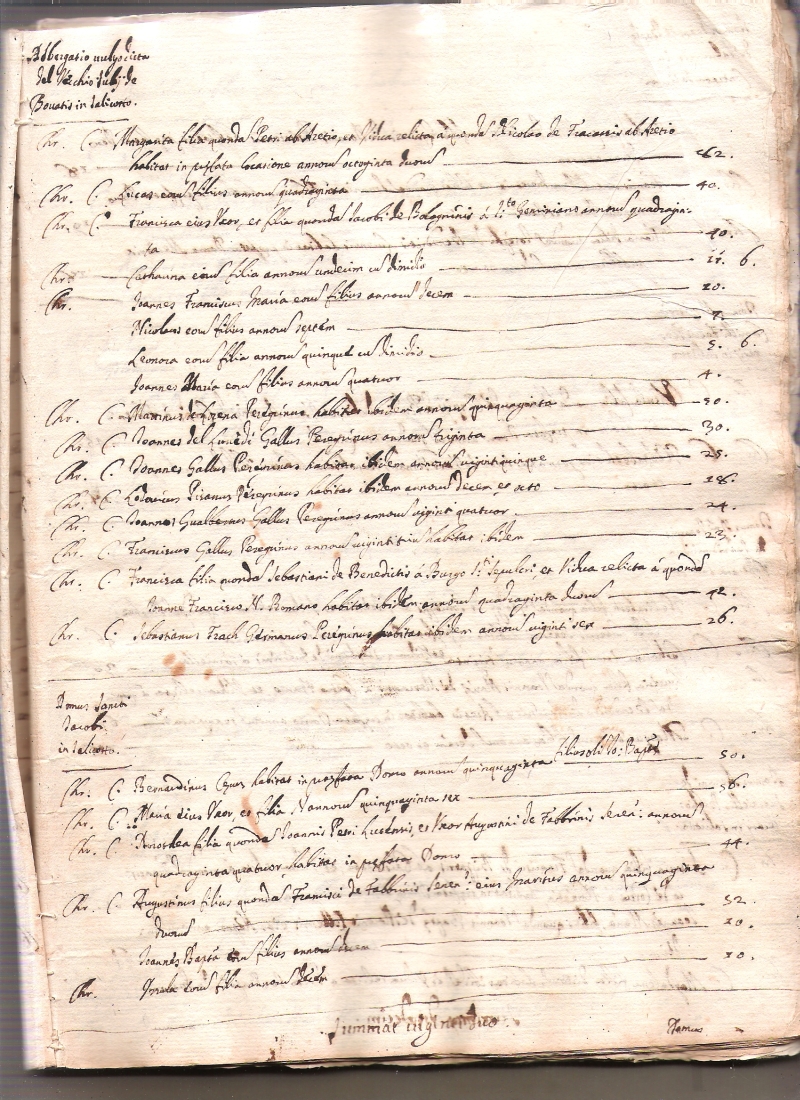 Albergatio nuncupata
del Vecchio subj: de
Bovatis in Salicotto.
Chr. C. Margarita filia quond. Petri ab Aretio, et Vidua relicta à quond. Nicolao de Fracassis ab Aretio
habitat in prefata locasione annorum octoginta duorum 82.
Chr. C. Lucas eorum filius annorum quadraginta 40.
Chr. C. Francisca eius Uxor, et filia quonda Jacobi de Bologninis à S.to Geminiano annorum quadragin-
ta 40.
Chr. Catharina eorum filia annorum undecim cu dimidio 11. 6.
Chr. Joannes Franciscus Maria eorum filius annorum decem 10.
Nicolaus eorum filius annorum septem 7.
Leonora eorum filia annorum quinque cu dimidio 5. 6.
Joannes Maria eorum filius annorum quatuor 4.
Chr. C. Martinus de Lorena Peregrinus habitat ibidem annorum quinquaginta 50.
Chr. C. Joannes del Gallus Peregrinus annorum triginta 30.
Chr. C. Joannes Gallus Peregrinus habitat ibidem annorum vigintiquinque 25.
Chr. C. Lodovicus Pisanus Peregrinus habitat ibidem annorum decem et octo 18.
Chr. C. Joannes Gualbertus Gallus Peregrinus annorum viginti quatuor 24.
Chr. C. Franciscus Gallus Peregrinus annorum vigintitrium habitat ibidem 23.
Chr. C. Francisca filia quonda Sebastiani de Benedictis à Burgo S.ti Sepulcri, et Vidua relicta à quonda
Joanne Francisco N. Romano habitat ibidem annorum quadraginta duorum 42.
Chr. C. Sebastianus Germanus Peregrinus habitat ibidem annorum viginti sex 26.
Domus Sancti
Jacobi
in Salicotto.
Chr. C. Bernardinus habitat in prefata Domo annorum quinquaginta 50.
Chr. C. Maria eius Uxor, et filia N annorum quinquaginta sex 56.
Chr. C. Dorothea filia quonda Joannis Petri et Uxor Augustini de Fabbrinis Senen: annorum
quadraginta quatuor habitat in prefata Domo 44.
Chr. C. Augustinus filius quondam Francisci de Fabbrinis Senen: eius Maritus annorum quinquaginta
duorum 52.
Joannes Bapta eorum filius annorum decem 10.
Chr. eorum filia annorum decem 10.
Domus